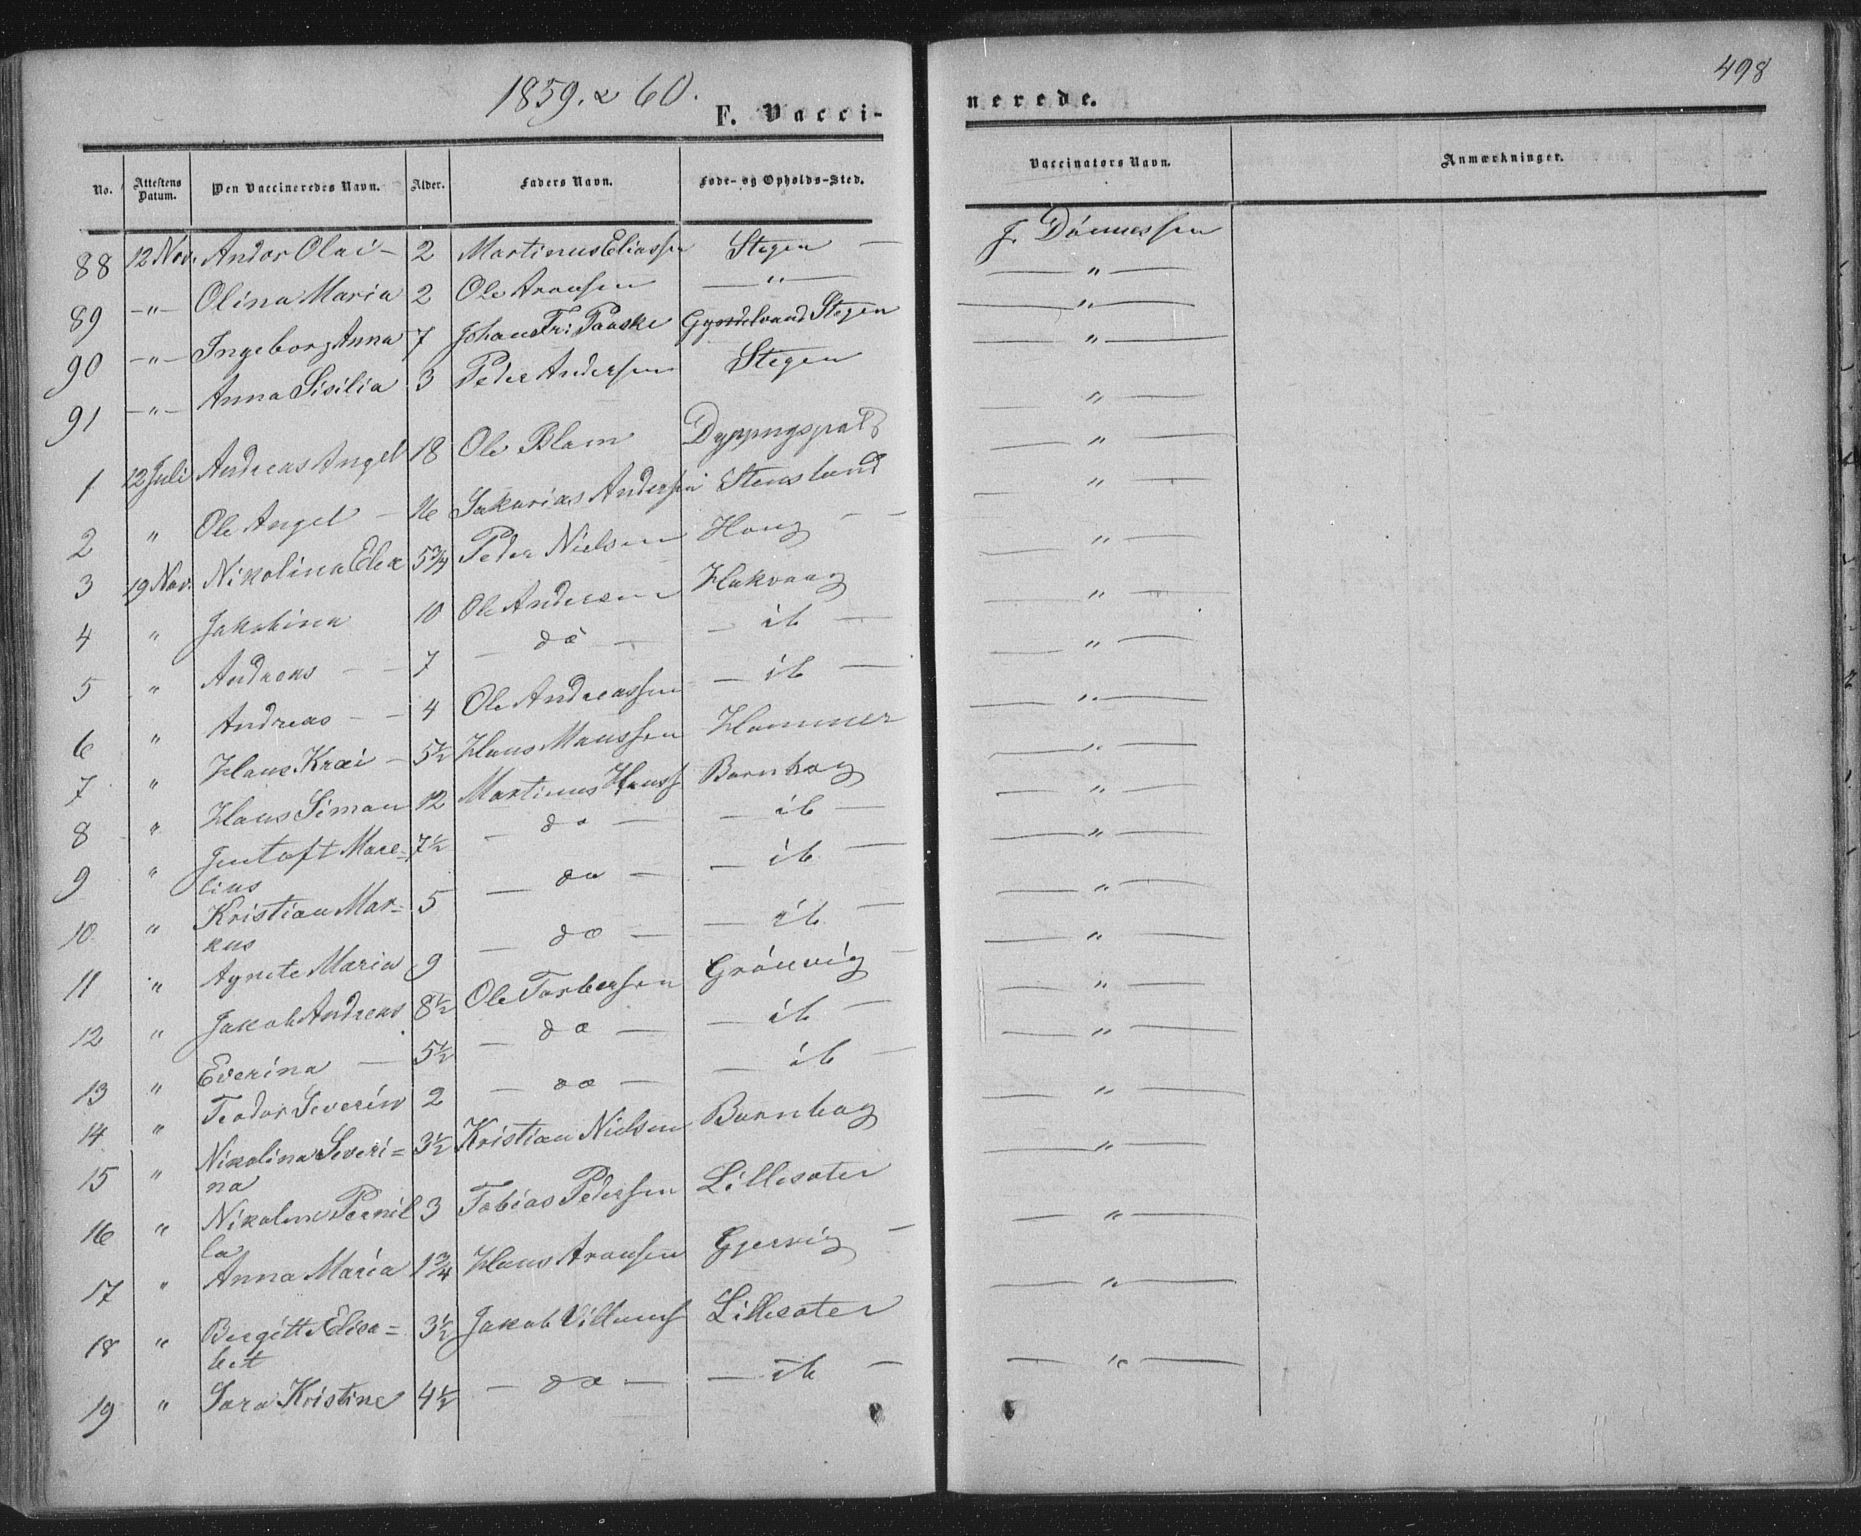 1859 & 60.
F. Vacci-
nerede.
498
No.
Attestens Datum.
Den Vaccineredes Navn.
Alder.
Faders Navn.
Føde- og Opholds-Sted.
Vaccinators Navn.
Anmærkninger.
88 12 Nov. Andor Olai - 2 Martinus Eliassen Stegen — J. Dønnessen
89 -"- Olina Maria 2 Ole Aronsen —"— —"—
90 -"- Ingeborg Anna 7 Johan Fr: Paaske Stegen —"—
91 -"- Anna Sisilia 3 Peder Andersen Stegen —"—
1 12 Juli Andreas Angel 18 Ole Blam —"—
2 " Ole Angel - 16 Sakarias Andersen Stensland —"—
3 19 Nov. Nikolina Elea 5 3/4 Peder Nielsen Haug — —"—
4 " Jakobina 10 Ole Andersen Hakvaag —"—
5 " Andreas — 7 — do — — ib — —"—
6 " Andreas — 4 Ole Andreassen — ib — —"—
7 " Hans Krai - 5 1/2 Hans Monssen Hammer —"—
8 " Hans Simon 12 Martinus Hanss Barnhag —"—
9 " Gustaft Mare- 7 1/2 — do — — ib — —"—
lius
10 " Kristian Mar= 5 — do — — ib — —"—
kus
11 " Agnete Maria 9 — do — — ib — —"—
12 " Jakob Andreas 8 1/2 Ole Torbersen Grønvig — —"—
13 " Everina — 5 1/2 — do — — ib — —"—
14 " Teodor Severin 2 — do — — ib — —"—
15 " Nikolina Severi= 3 1/2 Kristian Nielsen Barnhag —"—
na
16 " Nikoline Pernil 3 Tobias Pedersen Lillesater —"—
la
17 " Anna Maria 1 3/4 Hans Aronsen Gjervig — —"—
18 " Bergitt Elisa= 3 1/2 Jakob Villums Lillesater —"—
bet
19 " Sara Kristine 4 1/2 — do — — ib — —"—